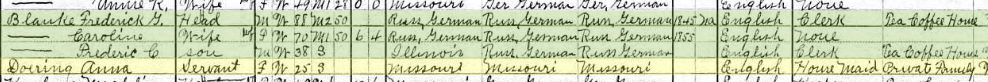 Annie K, Wife F W 49 M1 28 0 0 Missouri Ger. German Ger. German English None
Blanke Frederick G. Head M W 88 M2 50 Russ. German Russ. German Russ. German 1845 Na English Clerk Tea Coffee House
—— Caroline Wife F W 70 M1 50 6 4 Russ. German Russ. German Russ. German 1855 English None
—— Frederic C son M W 38 S Illinois Russ. German Russ. German English Clerk Tea Coffee House
Doering Anna Servant F W 25 S Missouri Missouri Missouri English House Maid Private Family